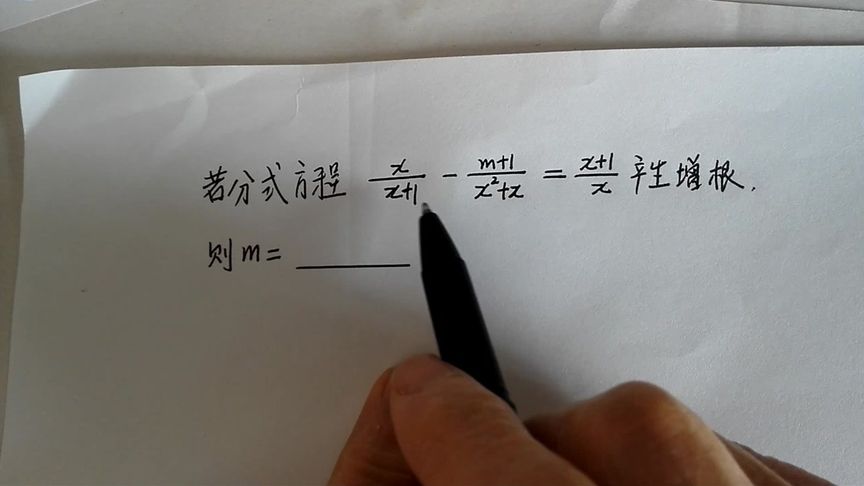 若分式方程 x/(x+1) - (m+1)/(x²+x) = (x+1)/x 产生增根.
则 m = ______